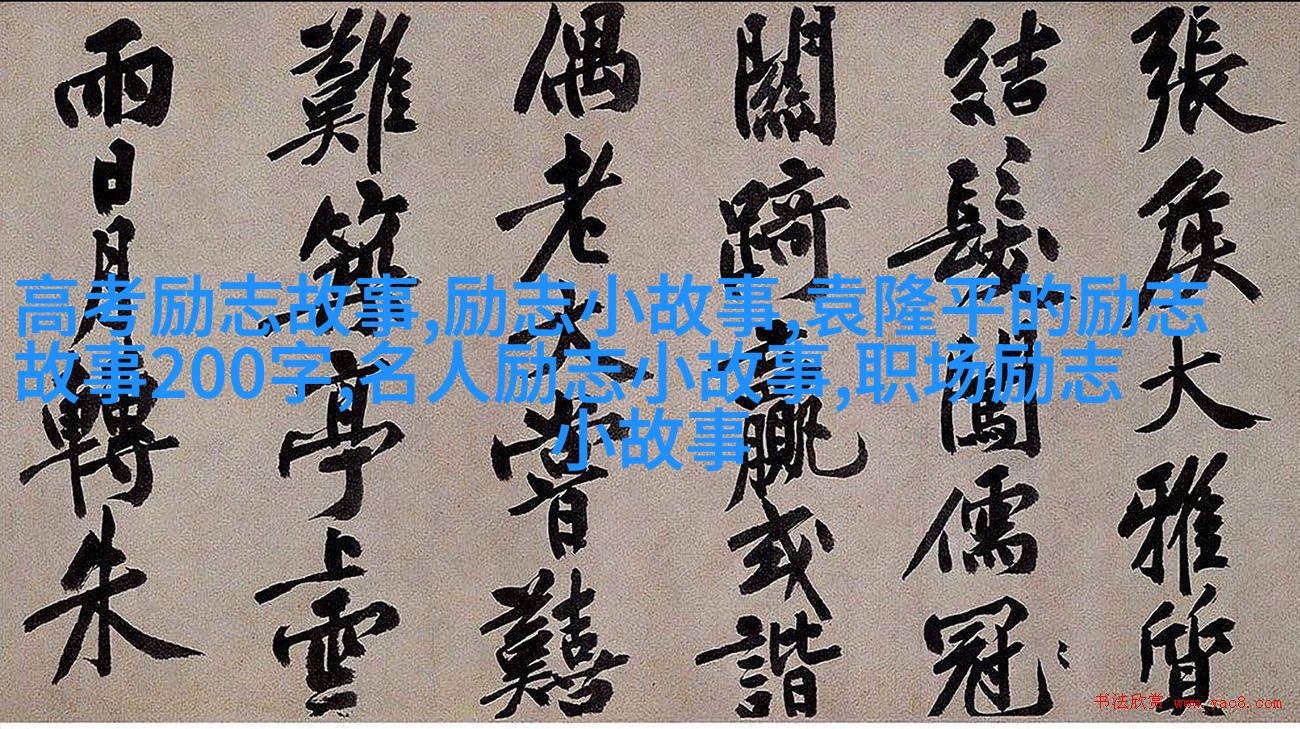 張侯大雅質
結髮闖儒冠
關踦贏或諧
偶老大嘗囏
難築亭上雲
雨日月轉朱
高考励志故事,励志小故事,袁隆平的励志
故事200字,名人励志小故事,职场励志
小故事
书法欣赏 www.yac8.com